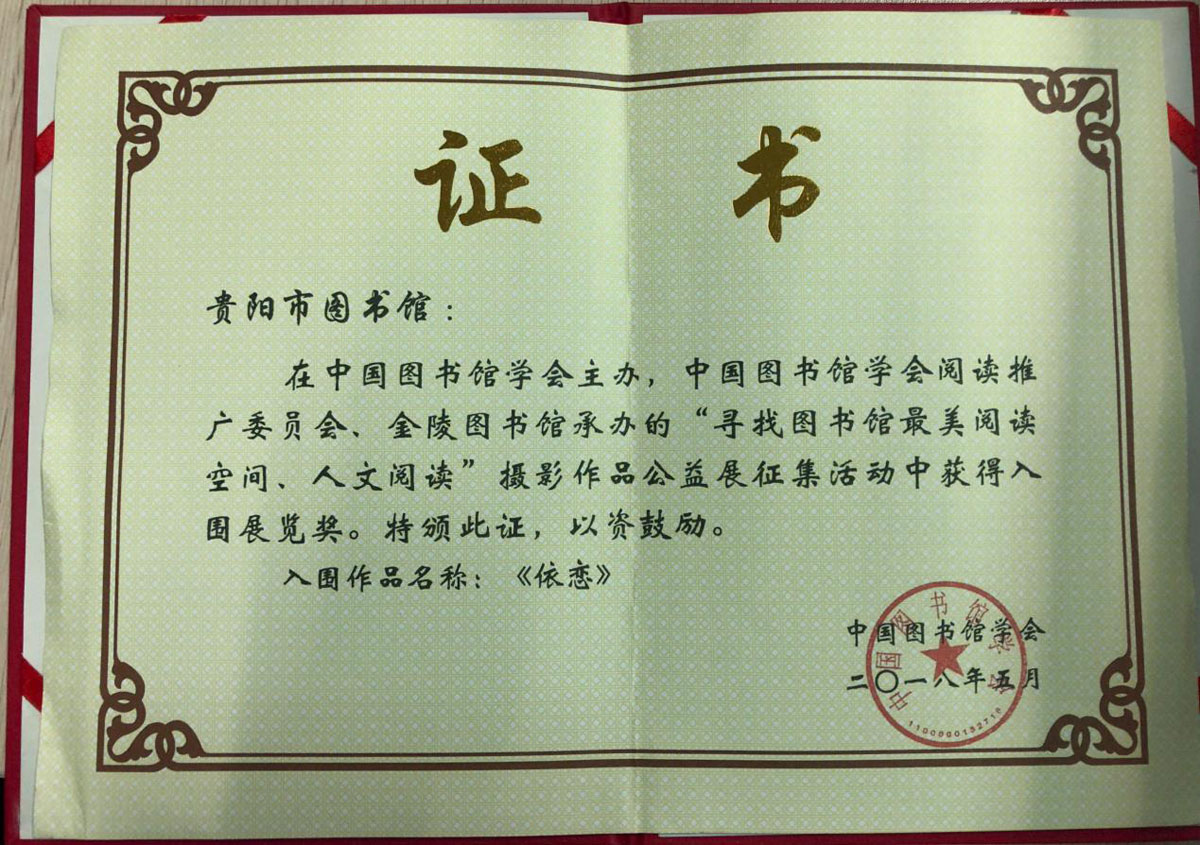 证 书
贵阳市图书馆：
在中国图书馆学会主办，中国图书馆学会阅读推
广委员会、金陵图书馆承办的“寻找图书馆最美阅读
空间、人文阅读”摄影作品公益展征集活动中获得入
围展览奖。特颁此证，以资鼓励。
入围作品名称：《依恋》
中国图书馆学会
二〇一八年五月
中国图书馆学会